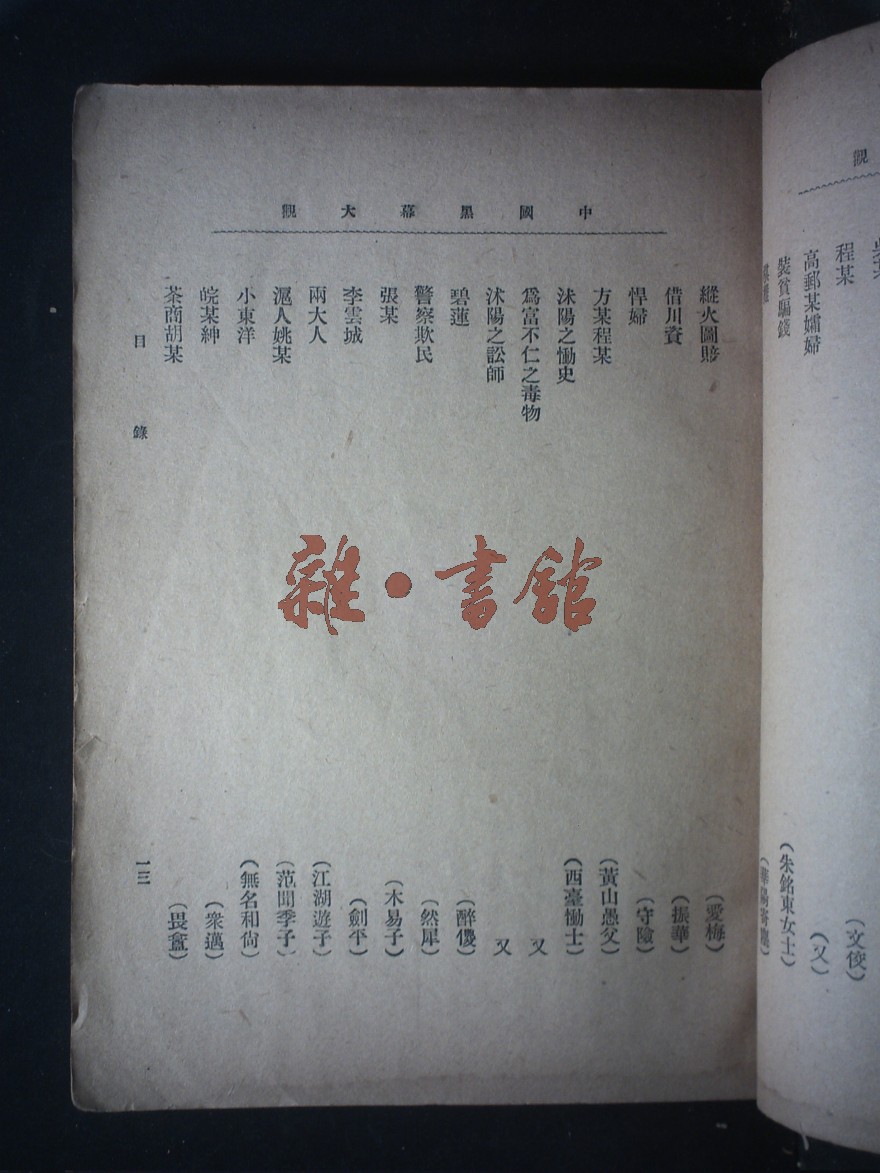 中國黑幕大觀
縱火圖賠　（愛梅）
借川資　（振華）
悍婦　（守險）
方某程某　（黃山愚父）
沭陽之慟史　（西臺慟士）
爲富不仁之毒物　又
沭陽之訟師　又
碧蓮　（醉儍）
警察欺民　（然犀）
張某　（木易子）
李雲城　（劍平）
兩大人　（江湖遊子）
滬人姚某　（范聞季子）
小東洋　（無名和尙）
皖某紳　（衆邁）
茶商胡某　（畏盦）
目錄　一三
雜·書館
觀
程某　（文俊）
高郵某孀婦　（又）
裝貧騙錢　（朱銘東女士）